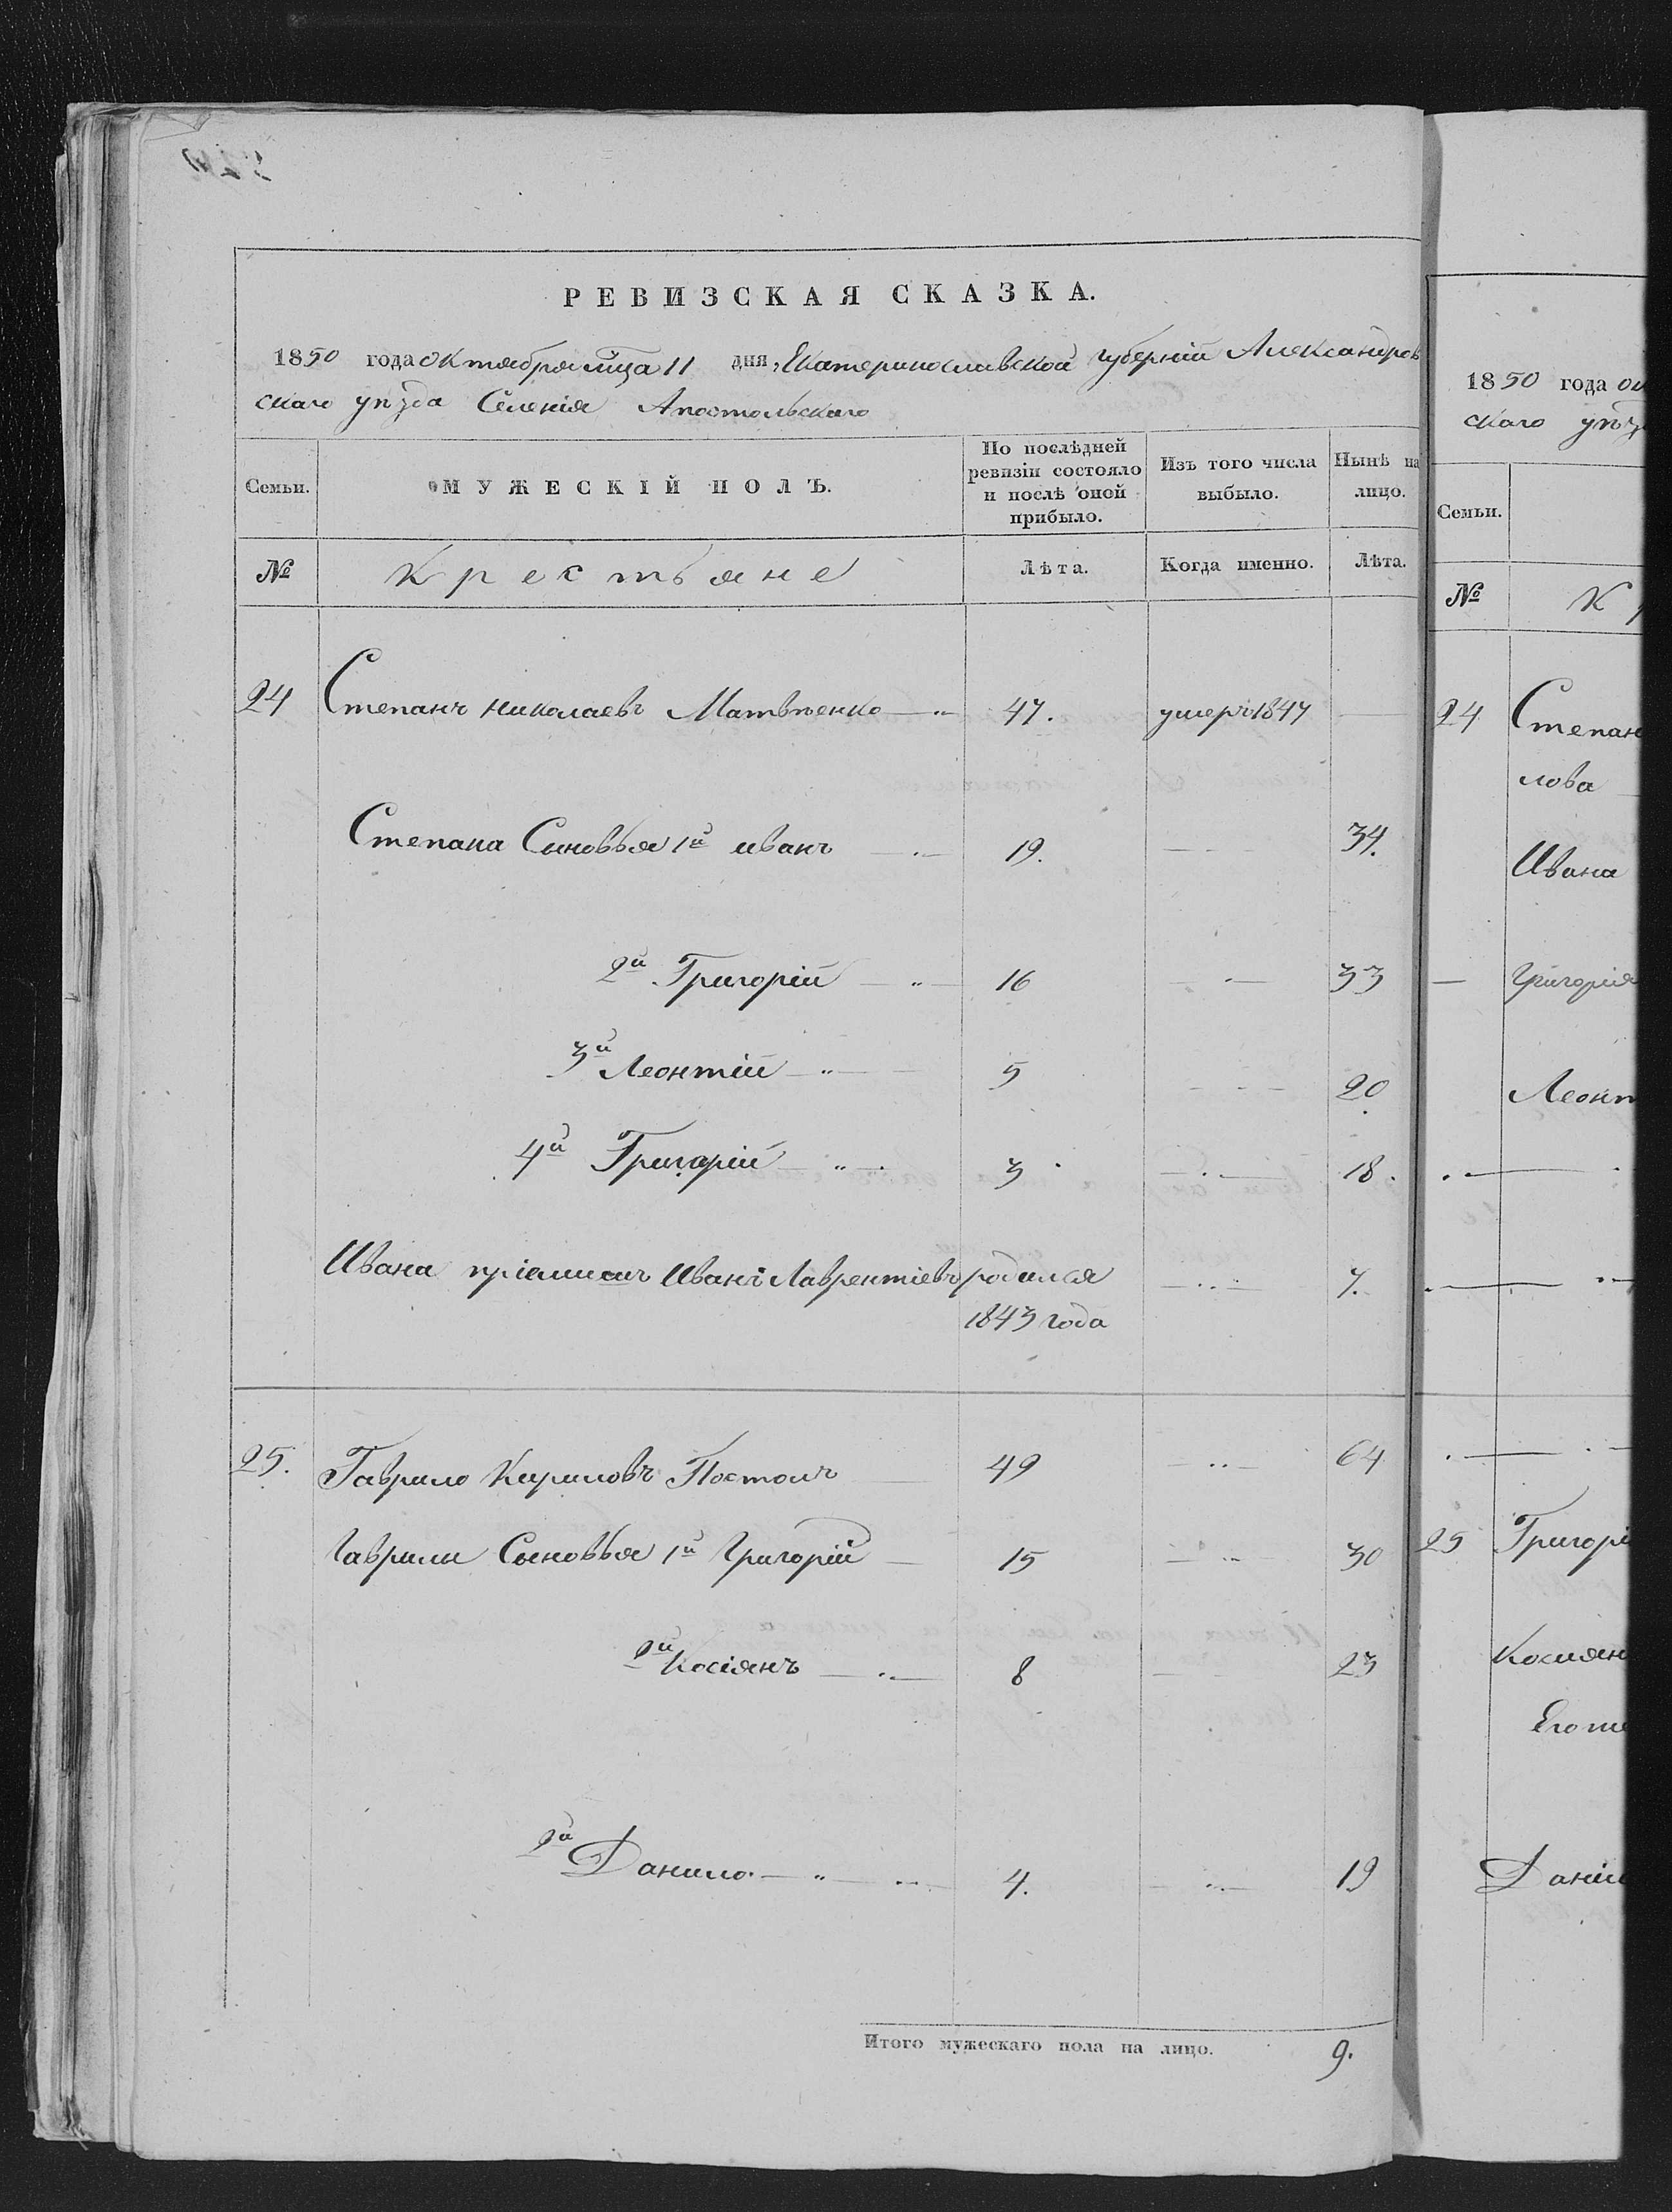 РЕВИЗСКАЯ СКАЗКА.
1850 года октября мца 11 дня, Екатеринославской губерніи Александров
скаго уѣзда Селенія Апостольскаго
Семьи.
МУЖЕСКІЙ ПОЛЪ.
По послѣдней
ревизіи состояло
и послѣ оной
прибыло.
Изъ того числа
выбыло.
Нынѣ на
лицо.
№
Крестьяне
Лѣта.
Когда именно.
Лѣта.
24 Степанъ Николаевъ Матвѣенко 47. умеръ 1847
Степана Сыновья 1й иванъ 19. 34.
2й Григорій 16 33
3й Леонтій 5 20
4й Григорій 3 18.
Ивана пріемышъ Иванъ Лаврентіевъ родился 7.
1843 года
25. Гаврило Кириловъ Постолъ 49 64
Гаврилы Сыновья 1й Григорій 15 30
2й Косіянъ 8 23
2й Данило 4. 19
Итого мужескаго пола на лицо. 9.
1850 года ок
скаго уѣз
Семьи.
№ К р
24 Степан
лова
Ивана
Григорія
Леонт
25 Григорі
Косиян
Даніи